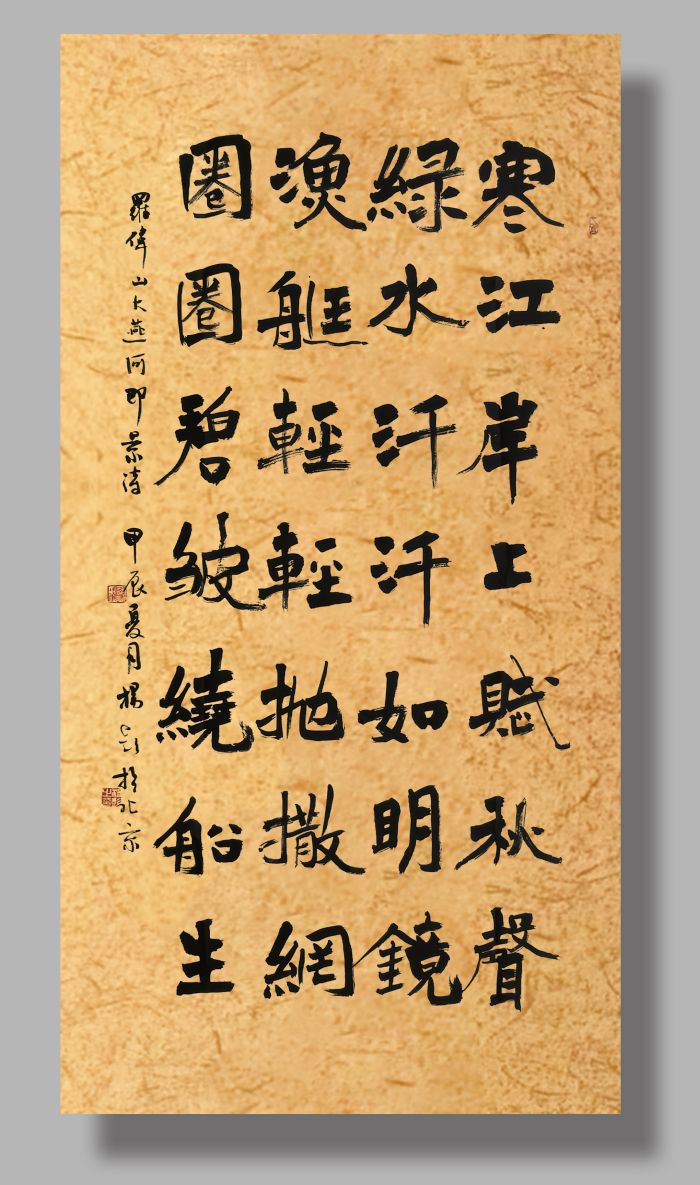 寒江岸上賦秋聲
綠水汗汗如明鏡
漁艇輕輕抛撒網
圈圈碧皴繞船生
羅偉山大燕河即景詩 甲辰夏月楊彭於北京